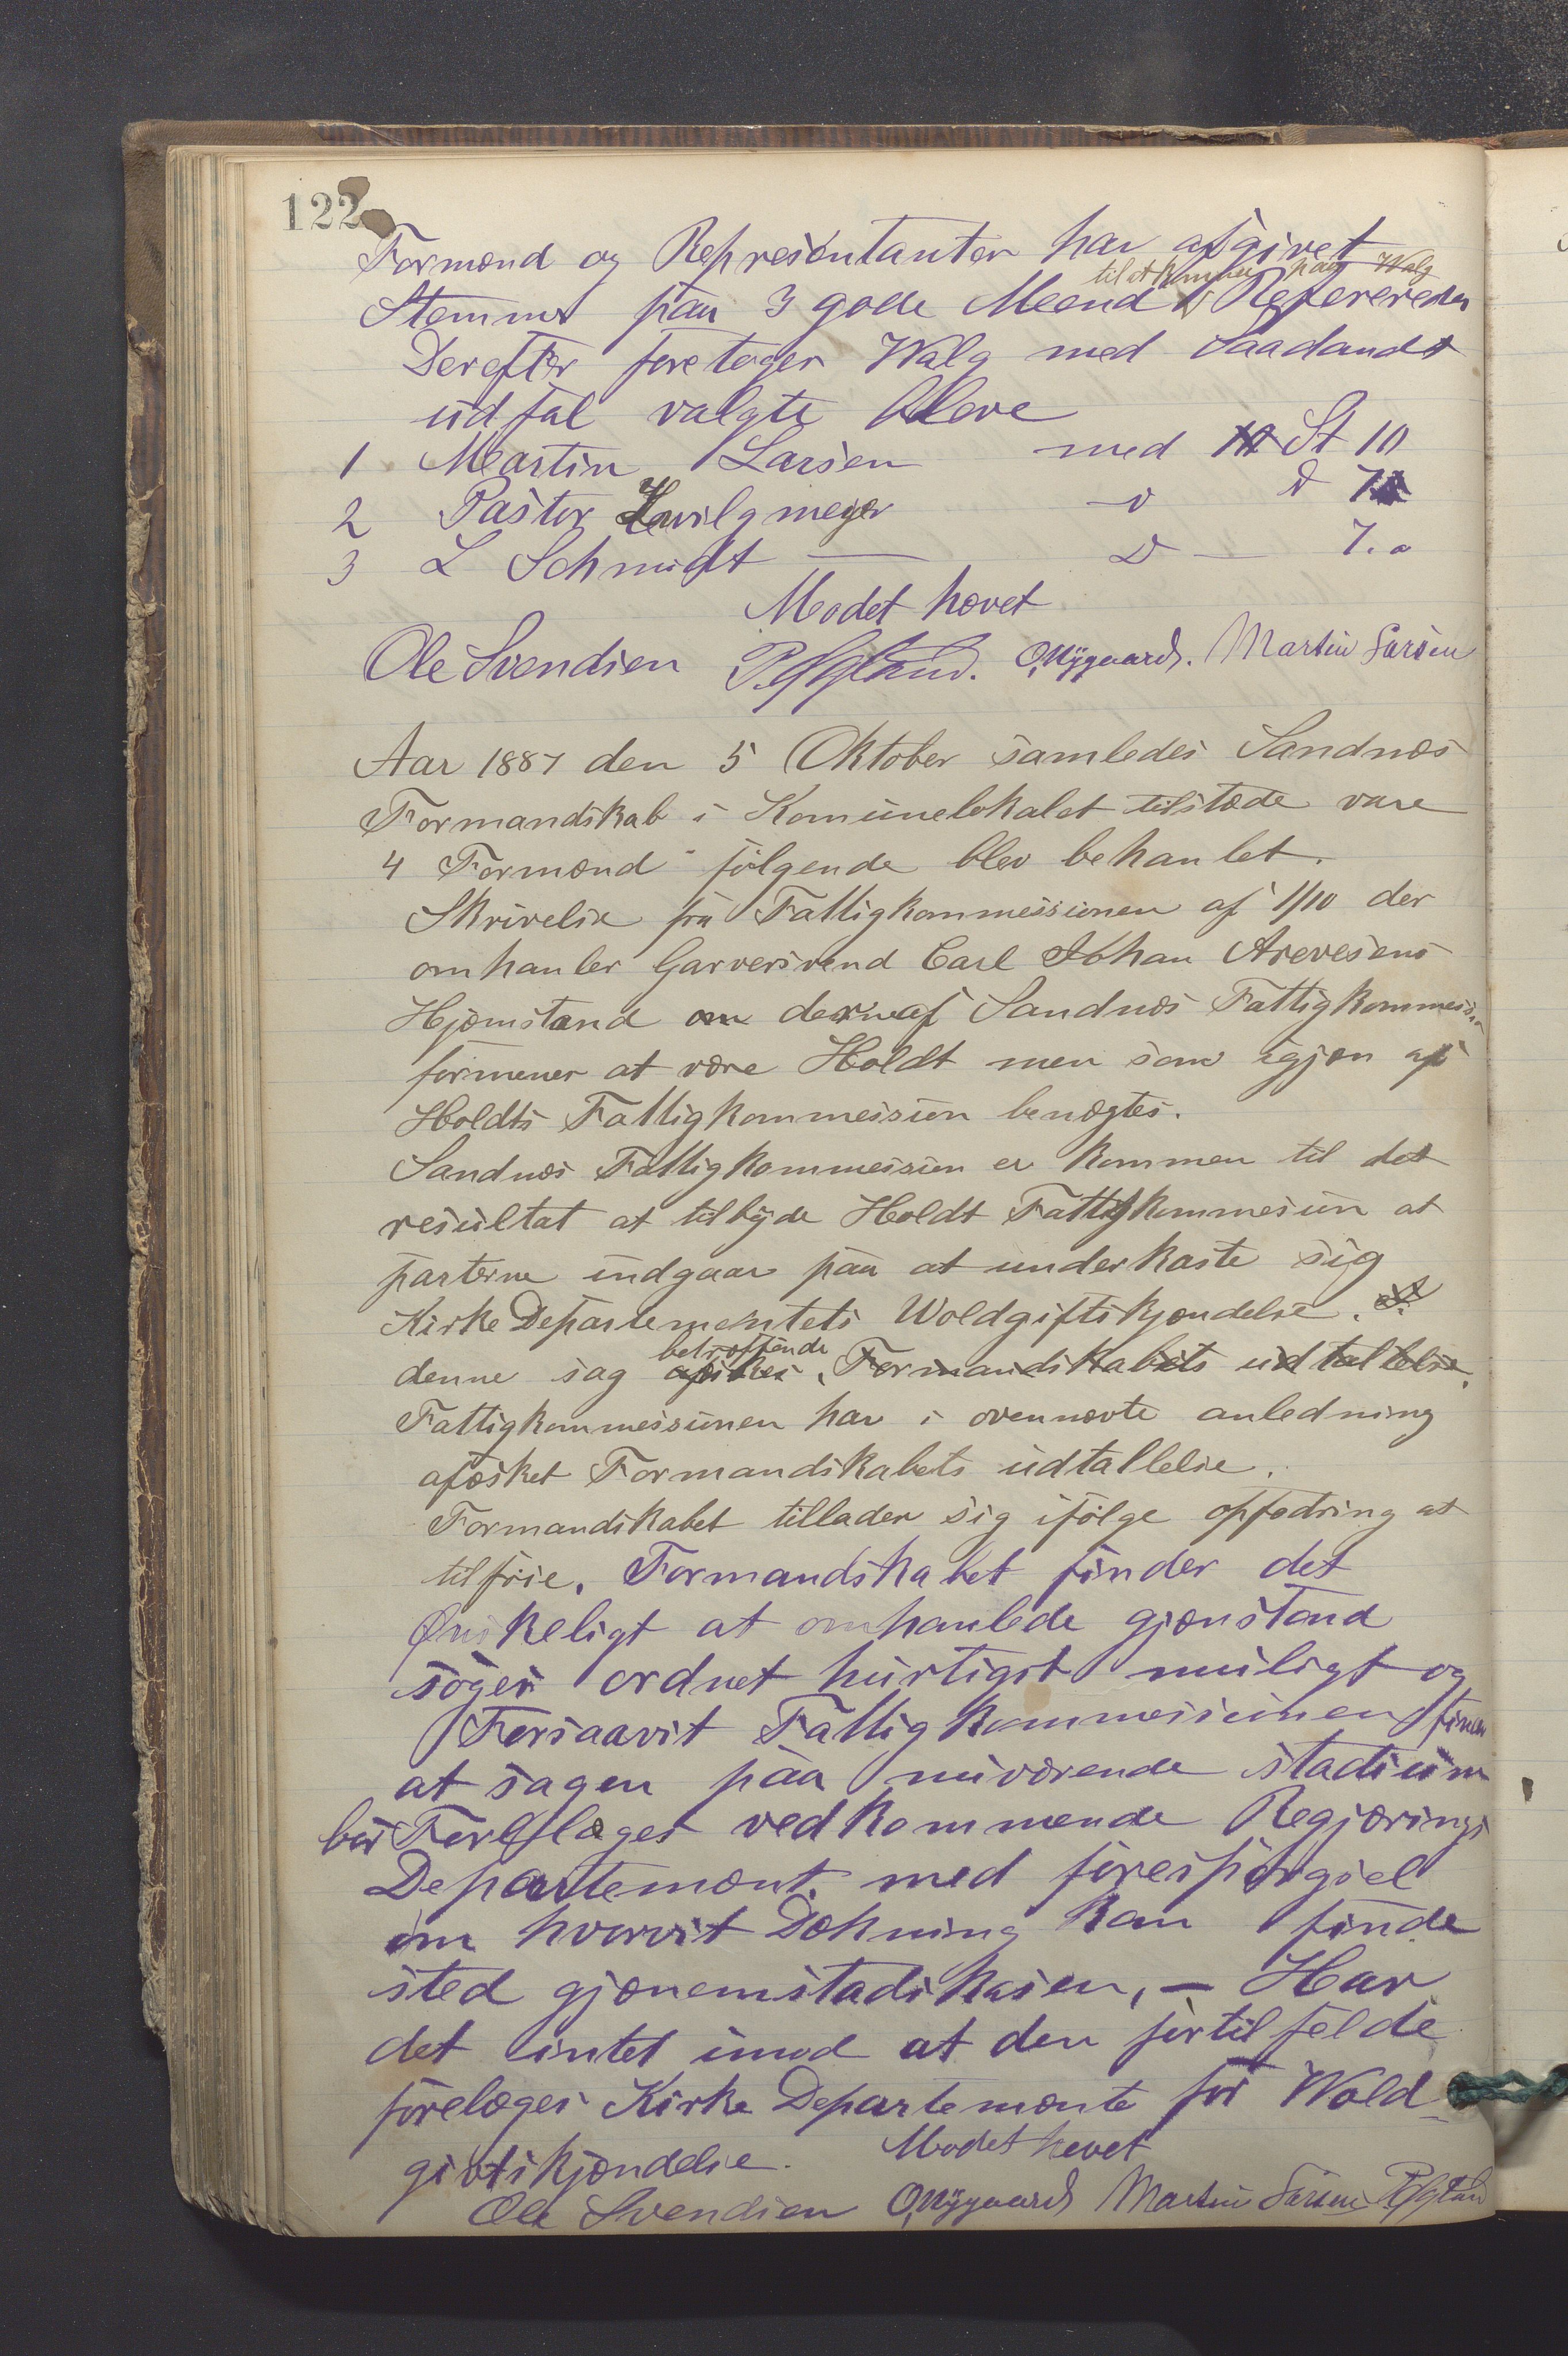 122
Formænd og Repræsentanter har afgivet
til at komme paa Walg
Stemmer paa 3 gode Meænd
Derefter foretoges Walg med Saadandt
udfal valgte bleve
1 Meartin Larsen med St 10
2 Pastor Hvilgmeyer d d 7
3 L Schmidt — d — 7. o
Modet hævet
Ole Svendsen O. Nÿgaard. Martin Larsen
Aar 1887 den 5 Oktober samledes Sandnæs
Formandskab i Komunelokalet tilstæde vare
4 Formænd følgende blev behanlet.
Skrivelse fra Fattigkommessionen af 1/10 der
omhanler Garversvend Carl Johan Arevesens
Hjæmstænd om derneaf Sandnæs Fattigkommession
formener at være Holdt men som igjæn af
Holdts Fattigkommession benægtes.
Sandnæs Fattigkommession er kommen til det
resultat at tilbÿde Holdt Fattigkommesion at
parterne indgaar paa at underkaste sig
Kirke Departementets Woldgiftskjændelse.
betræffende
denne sag afæskes, Formandskabets udtallelse.
Fattigkommessionen har i ovennævte anledning
afæsket Formandskabets udtallelse.
Formandskabet tillader sig ifølge opfodring at
tilføie. Formandskabet finder det
Ønskeligt at omhanlede gjænstand
søges ordnet hurtigst muligt og
Forsaavit Fattigkommessionen finder
at sagen paa nuværende stadium
bør Forelæges vedkommende Regjærings
Departemænt, med forespørgsel
om hvorvit Dækning kan finde
sted gjænemstadskasen, — Har
det intet imod at den førtilfelde
forelæges Kirke Departemænte for Wold-
givtskjændelse. Modet hevet
Ole Svendsen O. Nÿgaard Martin Larsen